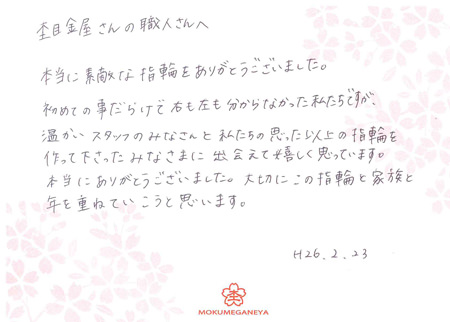 杢目金屋さんの職人さんへ
本当に素敵な指輪をありがとうございました。
初めての事だらけで右も左も分からなかった私たちですが、
温かいスタッフのみなさんと私たちの思った以上の指輪を
作って下さったみなさまに出会えて嬉しく思っています。
本当にありがとうございました。大切にこの指輪と家族と
年を重ねていこうと思います。
H26.2.23
MOKUMEGANEYA